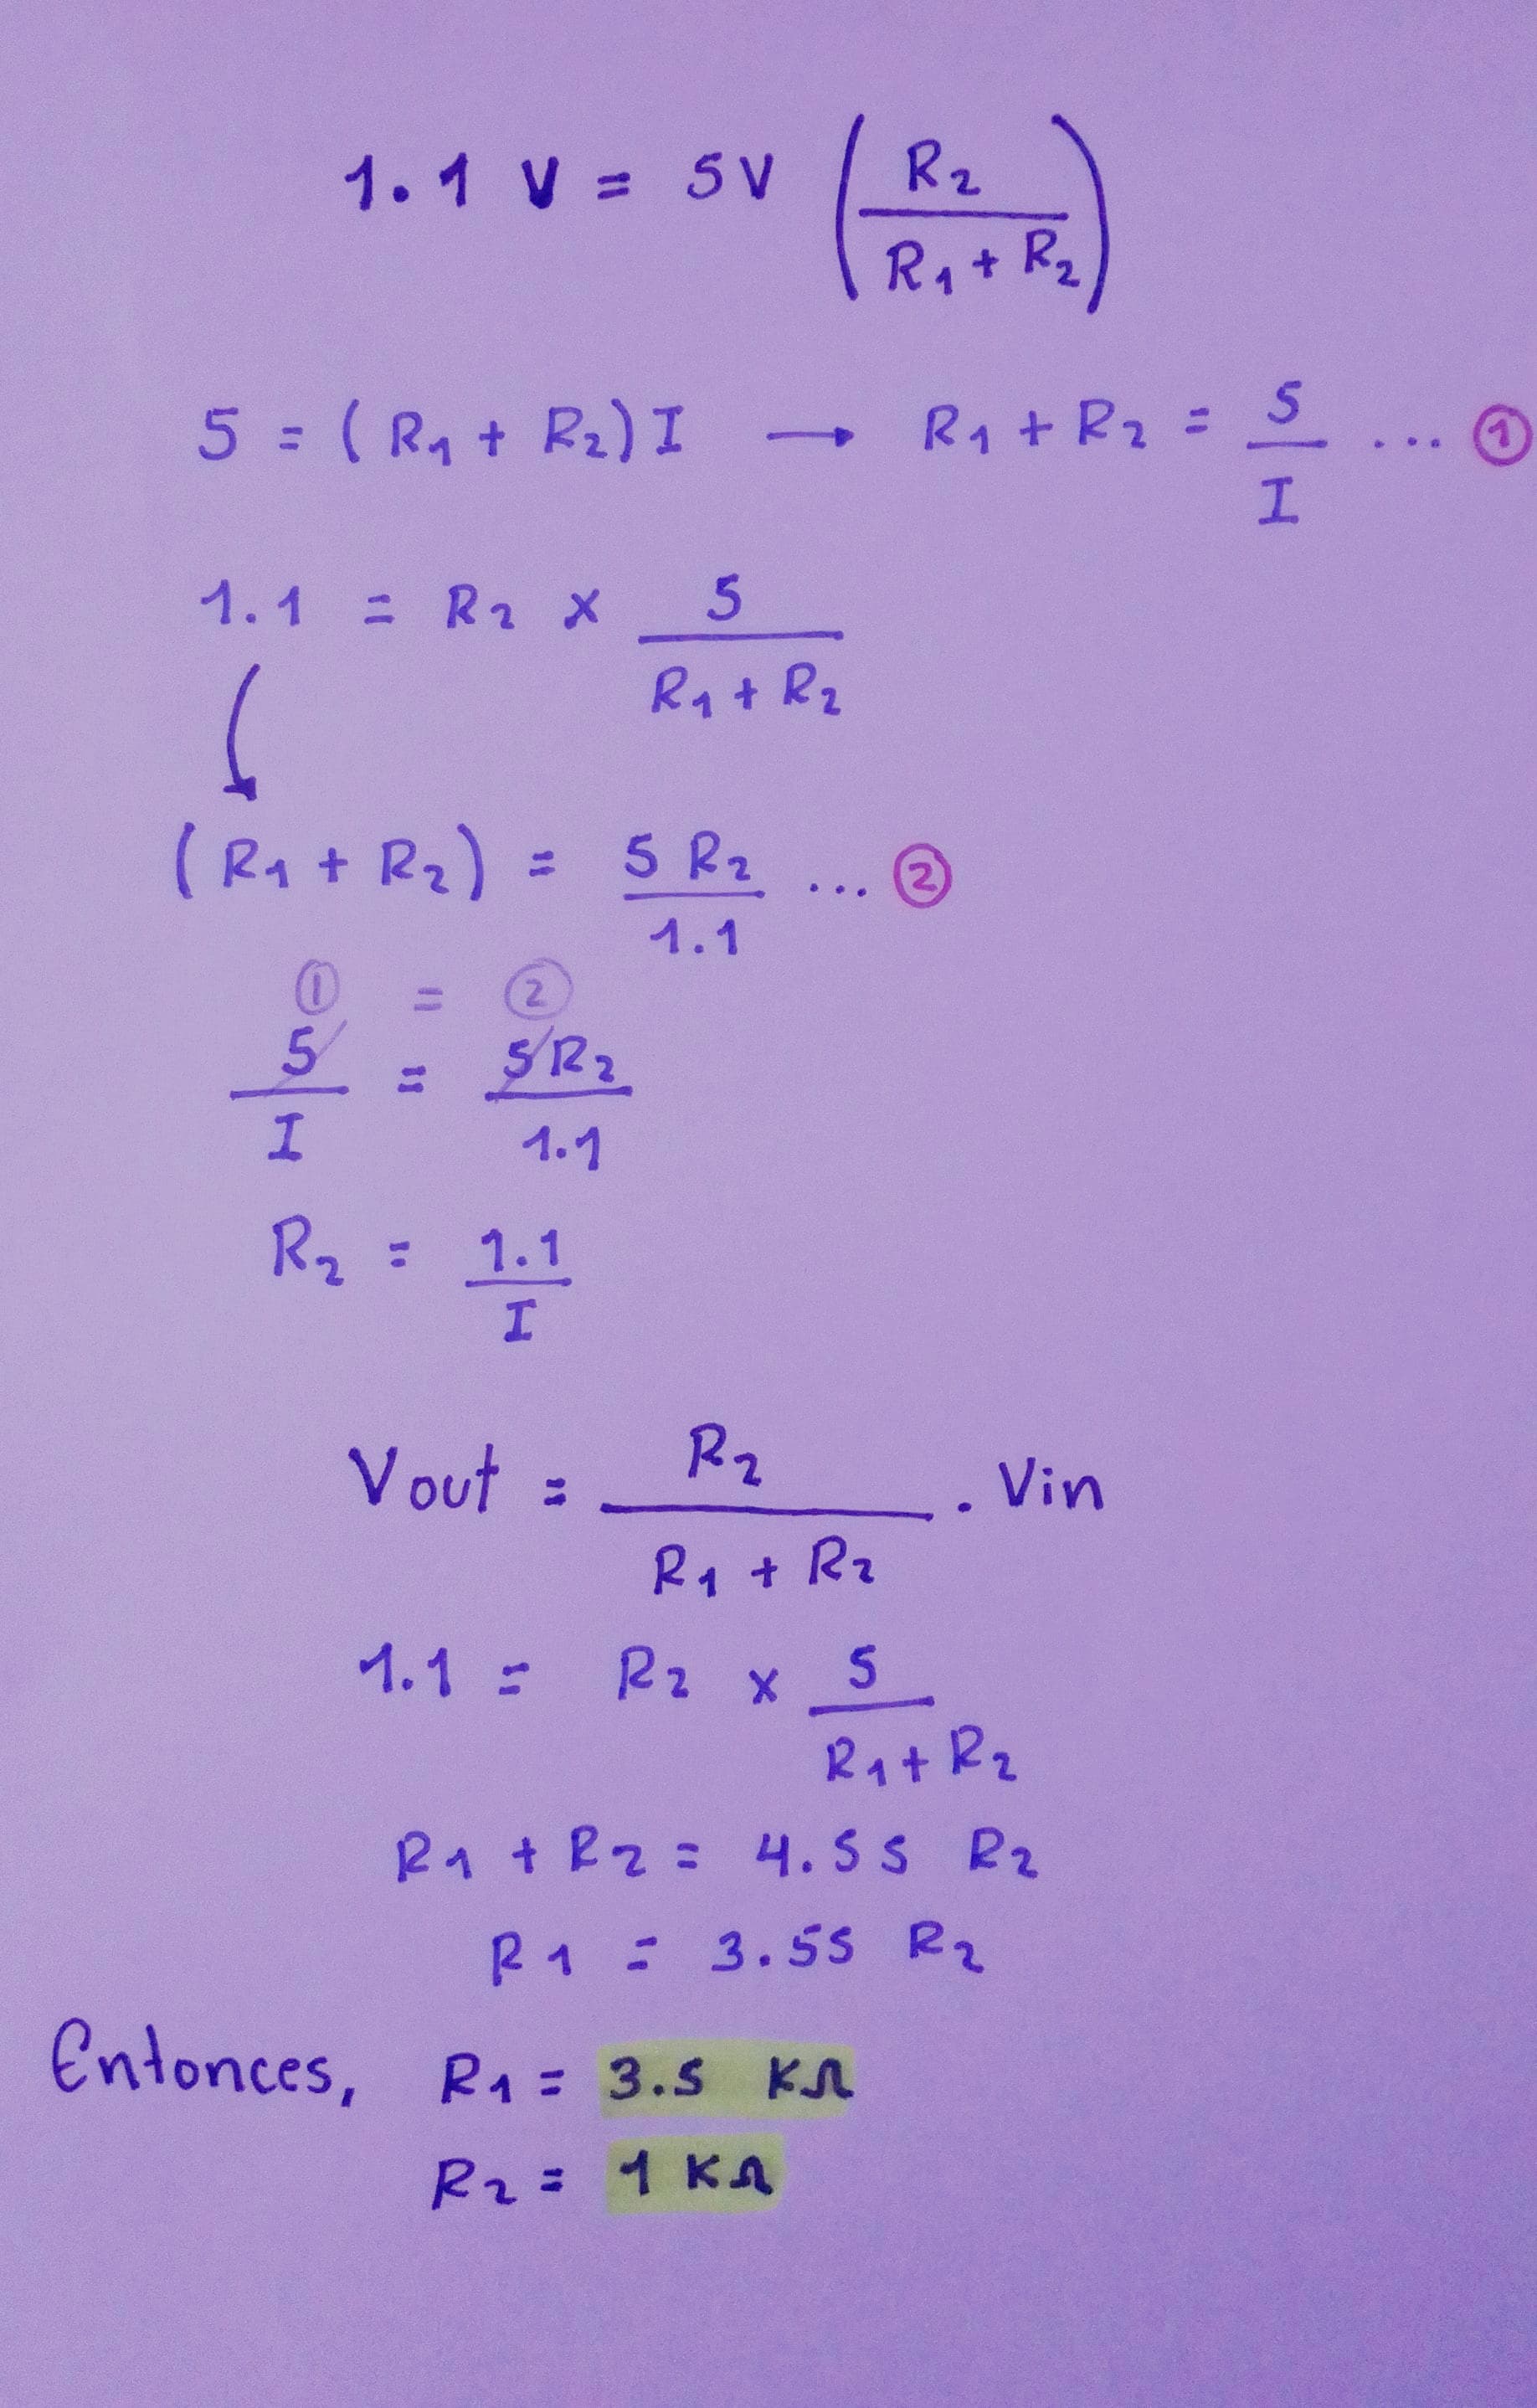 1.1 V = 5V (R₂ / (R₁ + R₂))
5 = (R₁ + R₂) I → R₁ + R₂ = 5 / I ... ①
1.1 = R₂ x 5 / (R₁ + R₂)
(R₁ + R₂) = 5 R₂ / 1.1 ... ②
① = ②
5 / I = 5 R₂ / 1.1
R₂ = 1.1 / I
Vout = R₂ / (R₁ + R₂) . Vin
1.1 = R₂ x 5 / (R₁ + R₂)
R₁ + R₂ = 4.55 R₂
R₁ = 3.55 R₂
Entonces, R₁ = 3.5 KΩ
R₂ = 1 KΩ